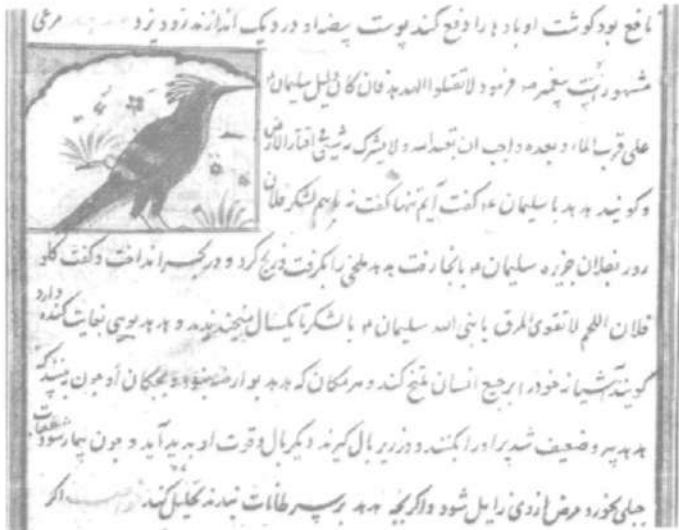 نافع بود کوشت او بادها را دفع کند پوست بیضه او در دیک اندازند زود بزد مرغی
مشهور پیغمبر فرمود لا تقتلوا الهدهد فان کان دلیل سلیمان
علی قرب الماء و بعده و احب ان یعبد الله و لا یشرک به شیئی اقطار الارض
و کویند هدهد با سلیمان کفت آیم تنها کفت نه با هم لشکر فلان
روز بفلان جزیره سلیمان بانجا رفت هدهد ملخی را بکرفت ذبح کرد و در بحر انداخت و کفت کلو
فلان اللحم لا تفوی المرق یا نبی الله سلیمان با لشکر تا یکسال میخندیدند و هدهد بویی بغایت کنده دارد
کویند آشیانه خود را برجیع انسان تلخ کند و هر مکان که هدهد بود و بچکان او چون بینند که
هدهد پیر و ضعیف شد پر او را بکنند و در زیر بال کیرند دیکر بال و قوت او پدید آید و چون بیمار شود
جبلی بخورد مرض از وی زایل شود و اکر بچه هدهد بر سرطانات نهند تحلیل کند اکر